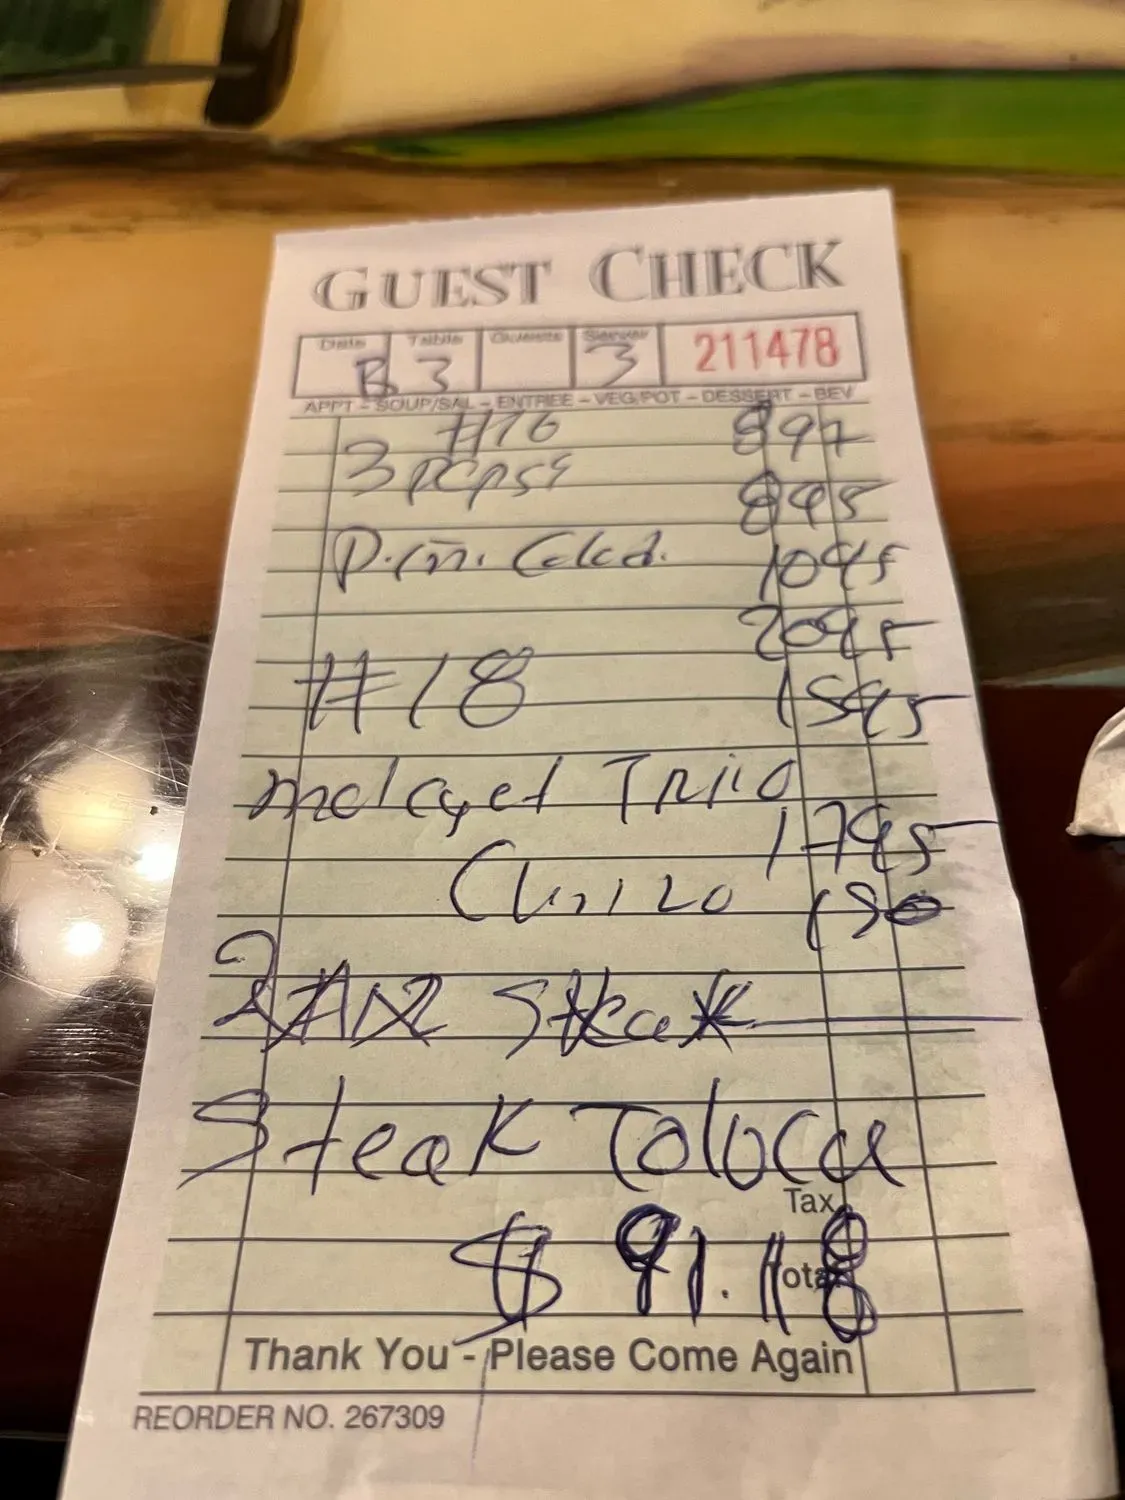 GUEST CHECK
Date Table Guests Server
B 3 3 211478
APPT - SOUP/SAL - ENTREE - VEG/POT - DESSERT - BEV
#16 897
3 pcps
895
P.in. Colad. 1095
2095
#18 1595
molcajet Trio
1795
Chrizo 150
2
Steak
Steak Toluca
Tax
Total
$ 91.18
Thank You - Please Come Again
REORDER NO. 267309